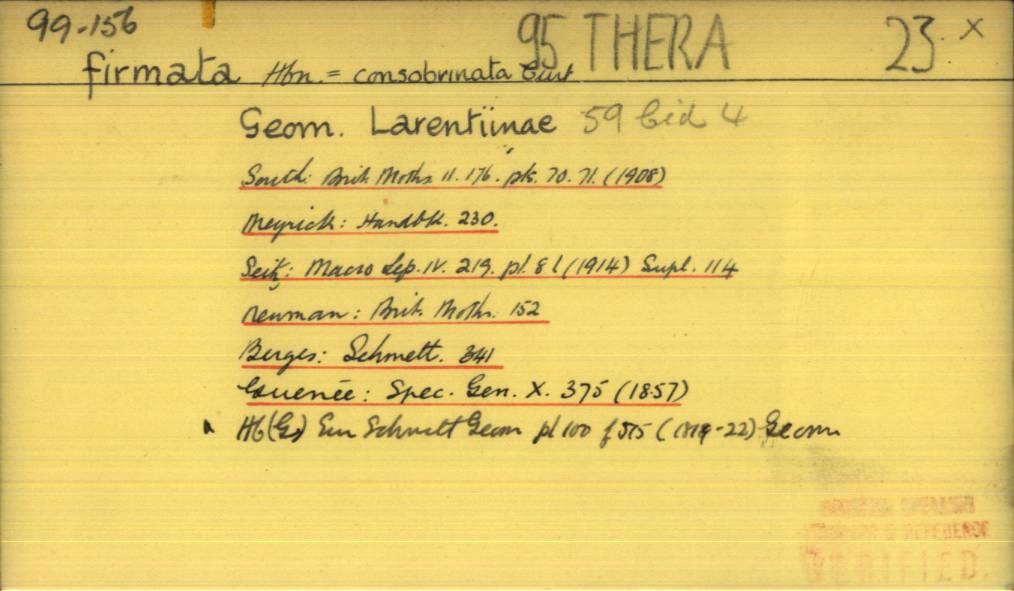 99-156
95 THERA 23. x
firmata Hbn. = consobrinata Curt
Geom. Larentiinae 59 Cid 4
South: Brit. Moths. 11. 176. pls. 70. 71. (1908)
Meyrick: Handbk. 230.
Seitz: Macro Lep. IV. 219. pl. 8 l (1914) Supl. 114
Newman: Brit. Moths. 152
Berges: Schmett. 341
Guenée: Spec. Gen. X. 375 (1857)
Hb (Gs) Eur Schmett Geom pl 100 f 515 (1819-22) Geom
& REFERENCE
VERIFIED.